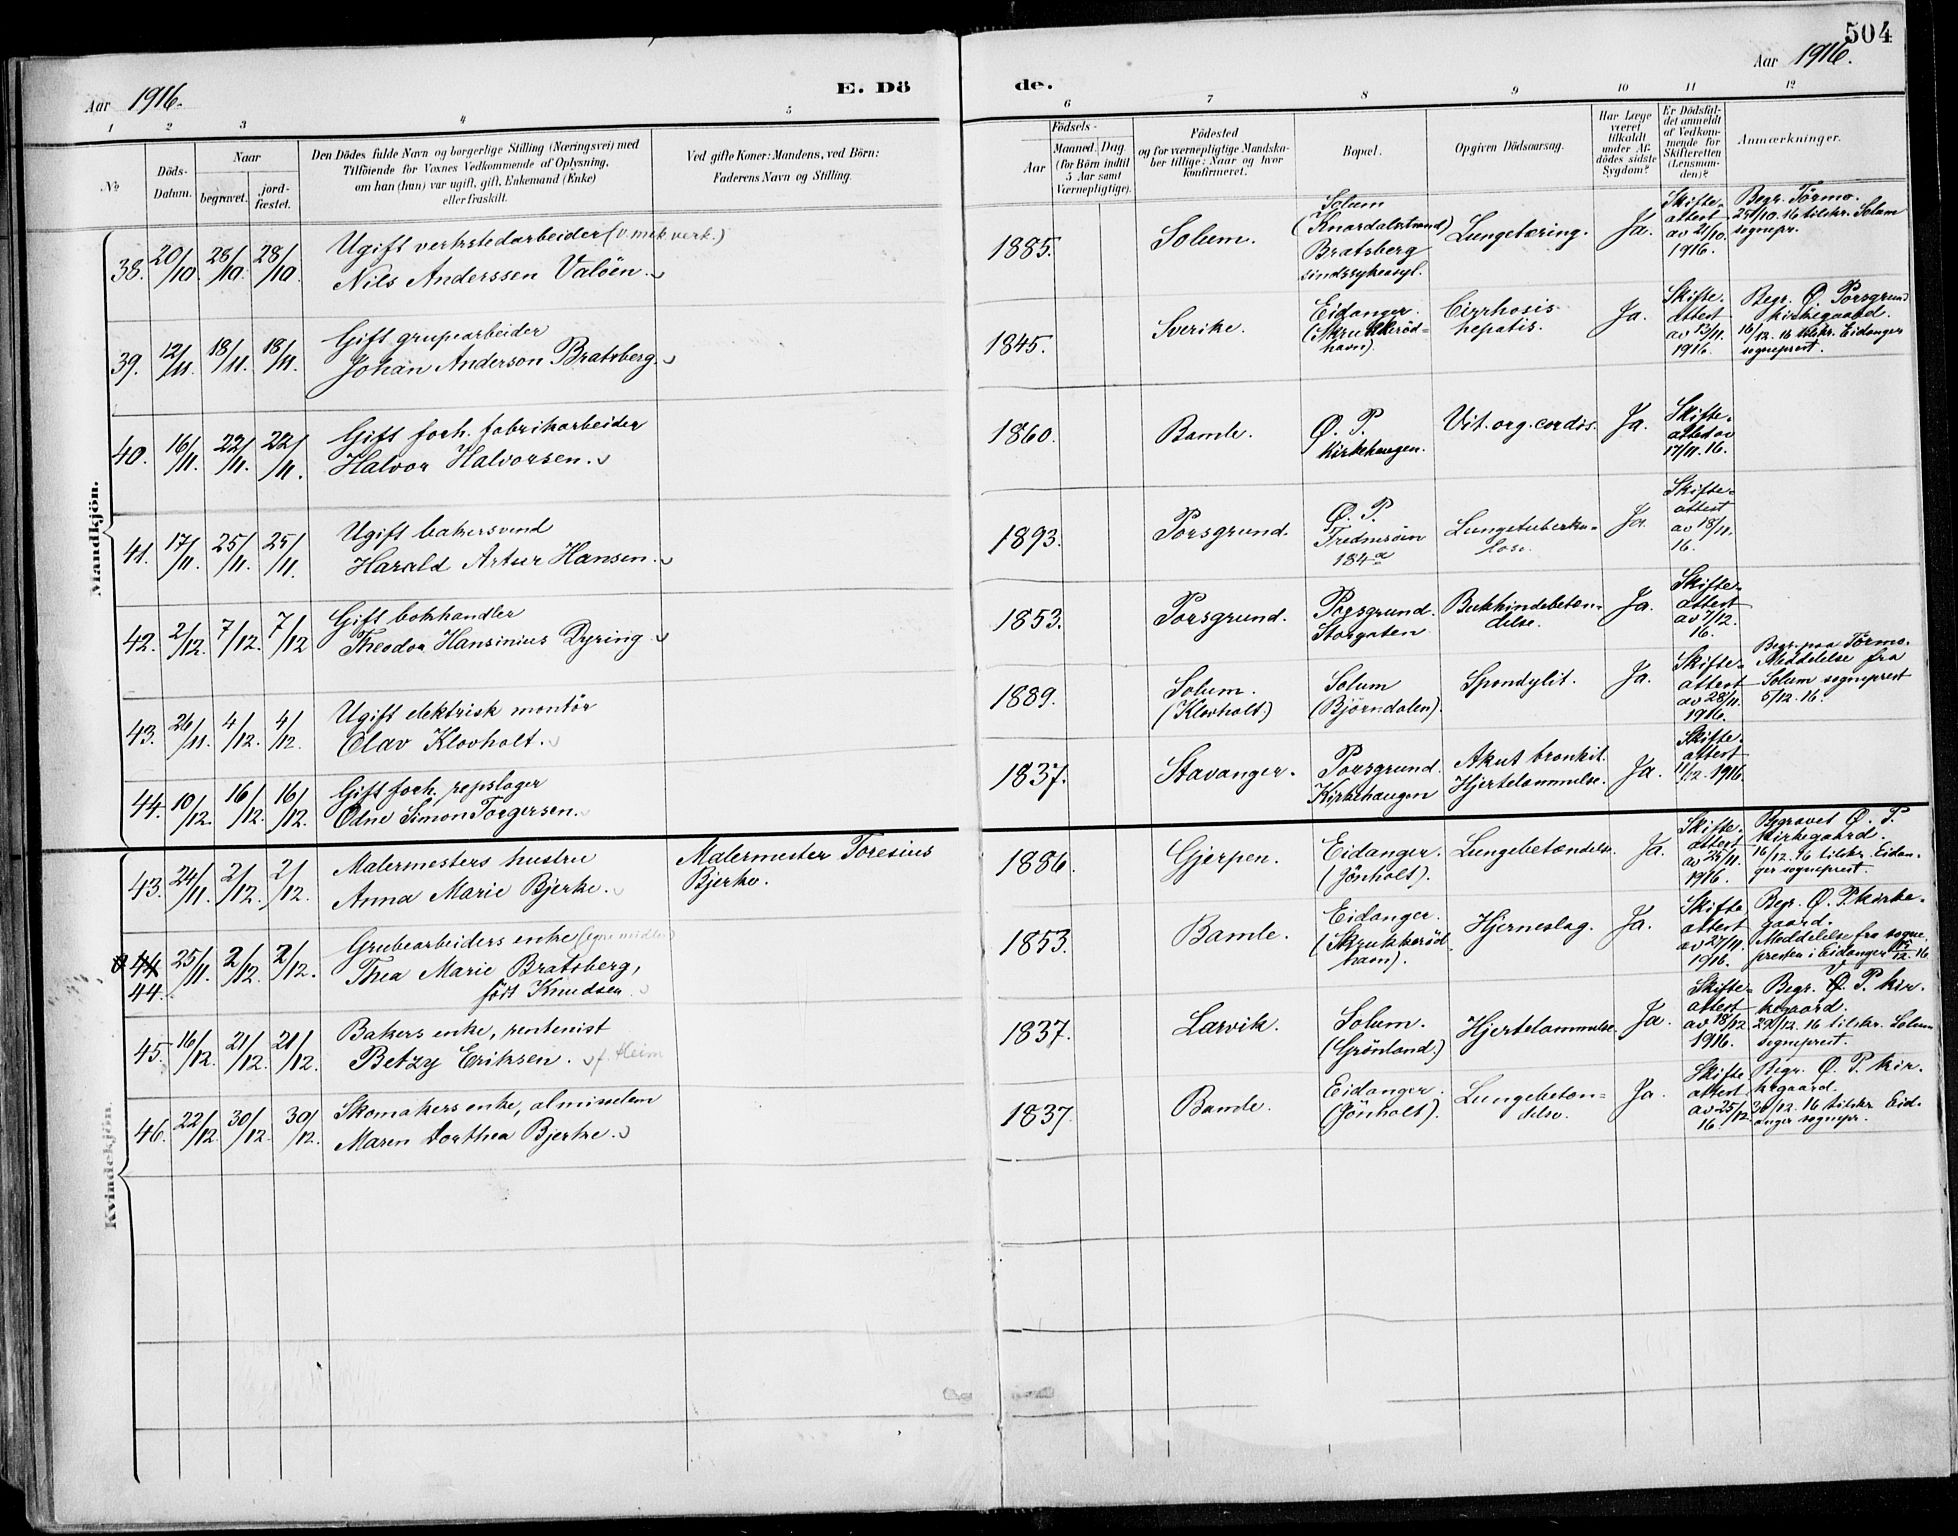 504
Aar 1916.
E. Dö de.
Aar 1916.
1 2 3 4 5 6 7 8 9 10 11 12
№
Döds-
Datum.
Naar
begravet.
jord-
fæstet.
Den Dödes fulde Navn og borgerlige Stilling (Næringsvei) med
Tilföiende for Voxnes Vedkommende af Oplysning,
om han (hun) var ugift, gift, Enkemand (Enke)
eller fraskilt.
Ved gifte Koner: Mandens, ved Börn:
Faderens Navn og Stilling.
Födsels-
Aar
Maaned. Dag.
(for Börn indtil
5 Aar samt
Værnepligtige).
Födested
og for værnepligtige Mandska-
ber tillige: Naar og hvor
konfirmeret.
Bopæl.
Opgiven Dödsaarsag.
Har Læge
været
tilkaldt
under Af-
dödes sidste
Sygdom?
Er Dödsfal-
det anmeldt
af Vedkom-
mende for
Skifteretten
(Lensman-
den)?
Anmærkninger.
Mandkjön.
38. 20/10. 28/10. 28/10
Ugift verkstedarbeider (v. mek verk.)
Nils Anderssen Valöen.
1885. Solum.
Solum
(Knardalstrand)
Bratsberg
sindssykeasyl.
Lungetæring. Ja.
Skifte-
attest
av 21/10.
1916.
Begr. Tørmo.
25/10. 16 tilskr. Solum
sognepr.
39. 12/11. 18/11. 18/11.
Gift grupearbeider
Johan Anderson Bratsberg.
1845. Sverike.
Eidanger.
havn).
Cirrhosis
hepatis.
Ja.
Skifte-
attest
av 13/11.
1916.
Begr. Ø. Porsgrund
kirkegaard.
16/12. 16 tilskr. Eidanger
sogneprest.
40. 16/11. 22/11. 22/11.
Gift forh. fabrikarbeider
Halvor Halvorsen.
1860. Bamle.
Ø. P.
Kirkehaugen.
Vit. org. cordis. Ja.
Skifte-
attest av
17/11. 16.
41. 17/11. 25/11. 25/11.
Ugift bakersvend
Harald Artur Hansen.
1893. Porsgrund.
Ø. P.
184 a
Lungetuberku-
lose.
Ja.
Skifte-
attest
av 18/11.
16.
42. 2/12. 7/12. 7/12
Gift bokhandler
Theodor Hansinius Dyring.
1853. Porsgrund.
Porsgrund.
Storgaten.
Bukhindebetæn-
delse.
Ja.
Skifte-
attest
av 7/12.
16.
43. 26/11. 4/12. 4/12.
Ugift elektrisk montör
Olav Klovholt.
1889.
Solum.
(Klovholt.)
Solum
(Bjørndalen).
Spondylit. Ja.
Skifte-
attest
av 28/11.
1916.
Begr. paa Tørmo.
Meddelelse fra
Solum sogneprest
5/12. 16.
44. 10/12. 16/12. 16/12.
Gift forh. repslager
Odne Simon Torgersen.
1837. Stavanger.
Porsgrund.
Kirkehaugen
Akut bronkit.
Hjertelammelse.
Ja.
Skifte-
attest
11/12. 1916.
Kvindekjön.
43. 24/11. 2/12. 2/12.
Malermesters hustru
Anna Marie Bjerke.
Malermester Toresius
Bjerke.
1886. Gjerpen.
Eidanger.
(Jönholt).
Lungebetændelse. Ja.
Skifte-
attest
av 25/11.
1916.
Begravet Ø. P.
kirkegaard.
16/12. 16 tilskr. Eidan-
ger sogneprest.
44
44. 25/11. 2/12. 2/12.
Grubearbeiders enke (egne midler)
Thea Marie Bratsberg,
født Knudsen.
1853. Bamle.
Eidanger.
(Skrukkeröd
havn).
Hjerneslag. Ja.
Skifte
attest
av 27/11.
1916.
Begr. Ø. P. kirke-
gaard.
Meddelelse fra sogne-
presten i Eidanger 15/12. 16
45. 16/12. 21/12. 21/12.
Bakers enke, rentenist
Betzy Eriksen. f. Heim
1837. Larvik.
Solum.
(Grönland.)
Hjertelammelse. Ja.
Skifte-
attest
av 18/12
1916.
Begr. Ø. P. kir-
kegaard.
29/12. 16 tilskr. Solum
sogneprest.
46. 22/12 30/12. 30/12.
Skomakers enke, almisselem
Maren Dorthea Bjerke.
1837. Bamle.
Eidanger.
(Jönholt).
Lungebetæn-
delse.
Ja.
Skifte
attest
av 25/12
16.
Begr. Ø. P. kir-
kegaard.
30/12. 16 tilskr. Eid-
anger sognepr.